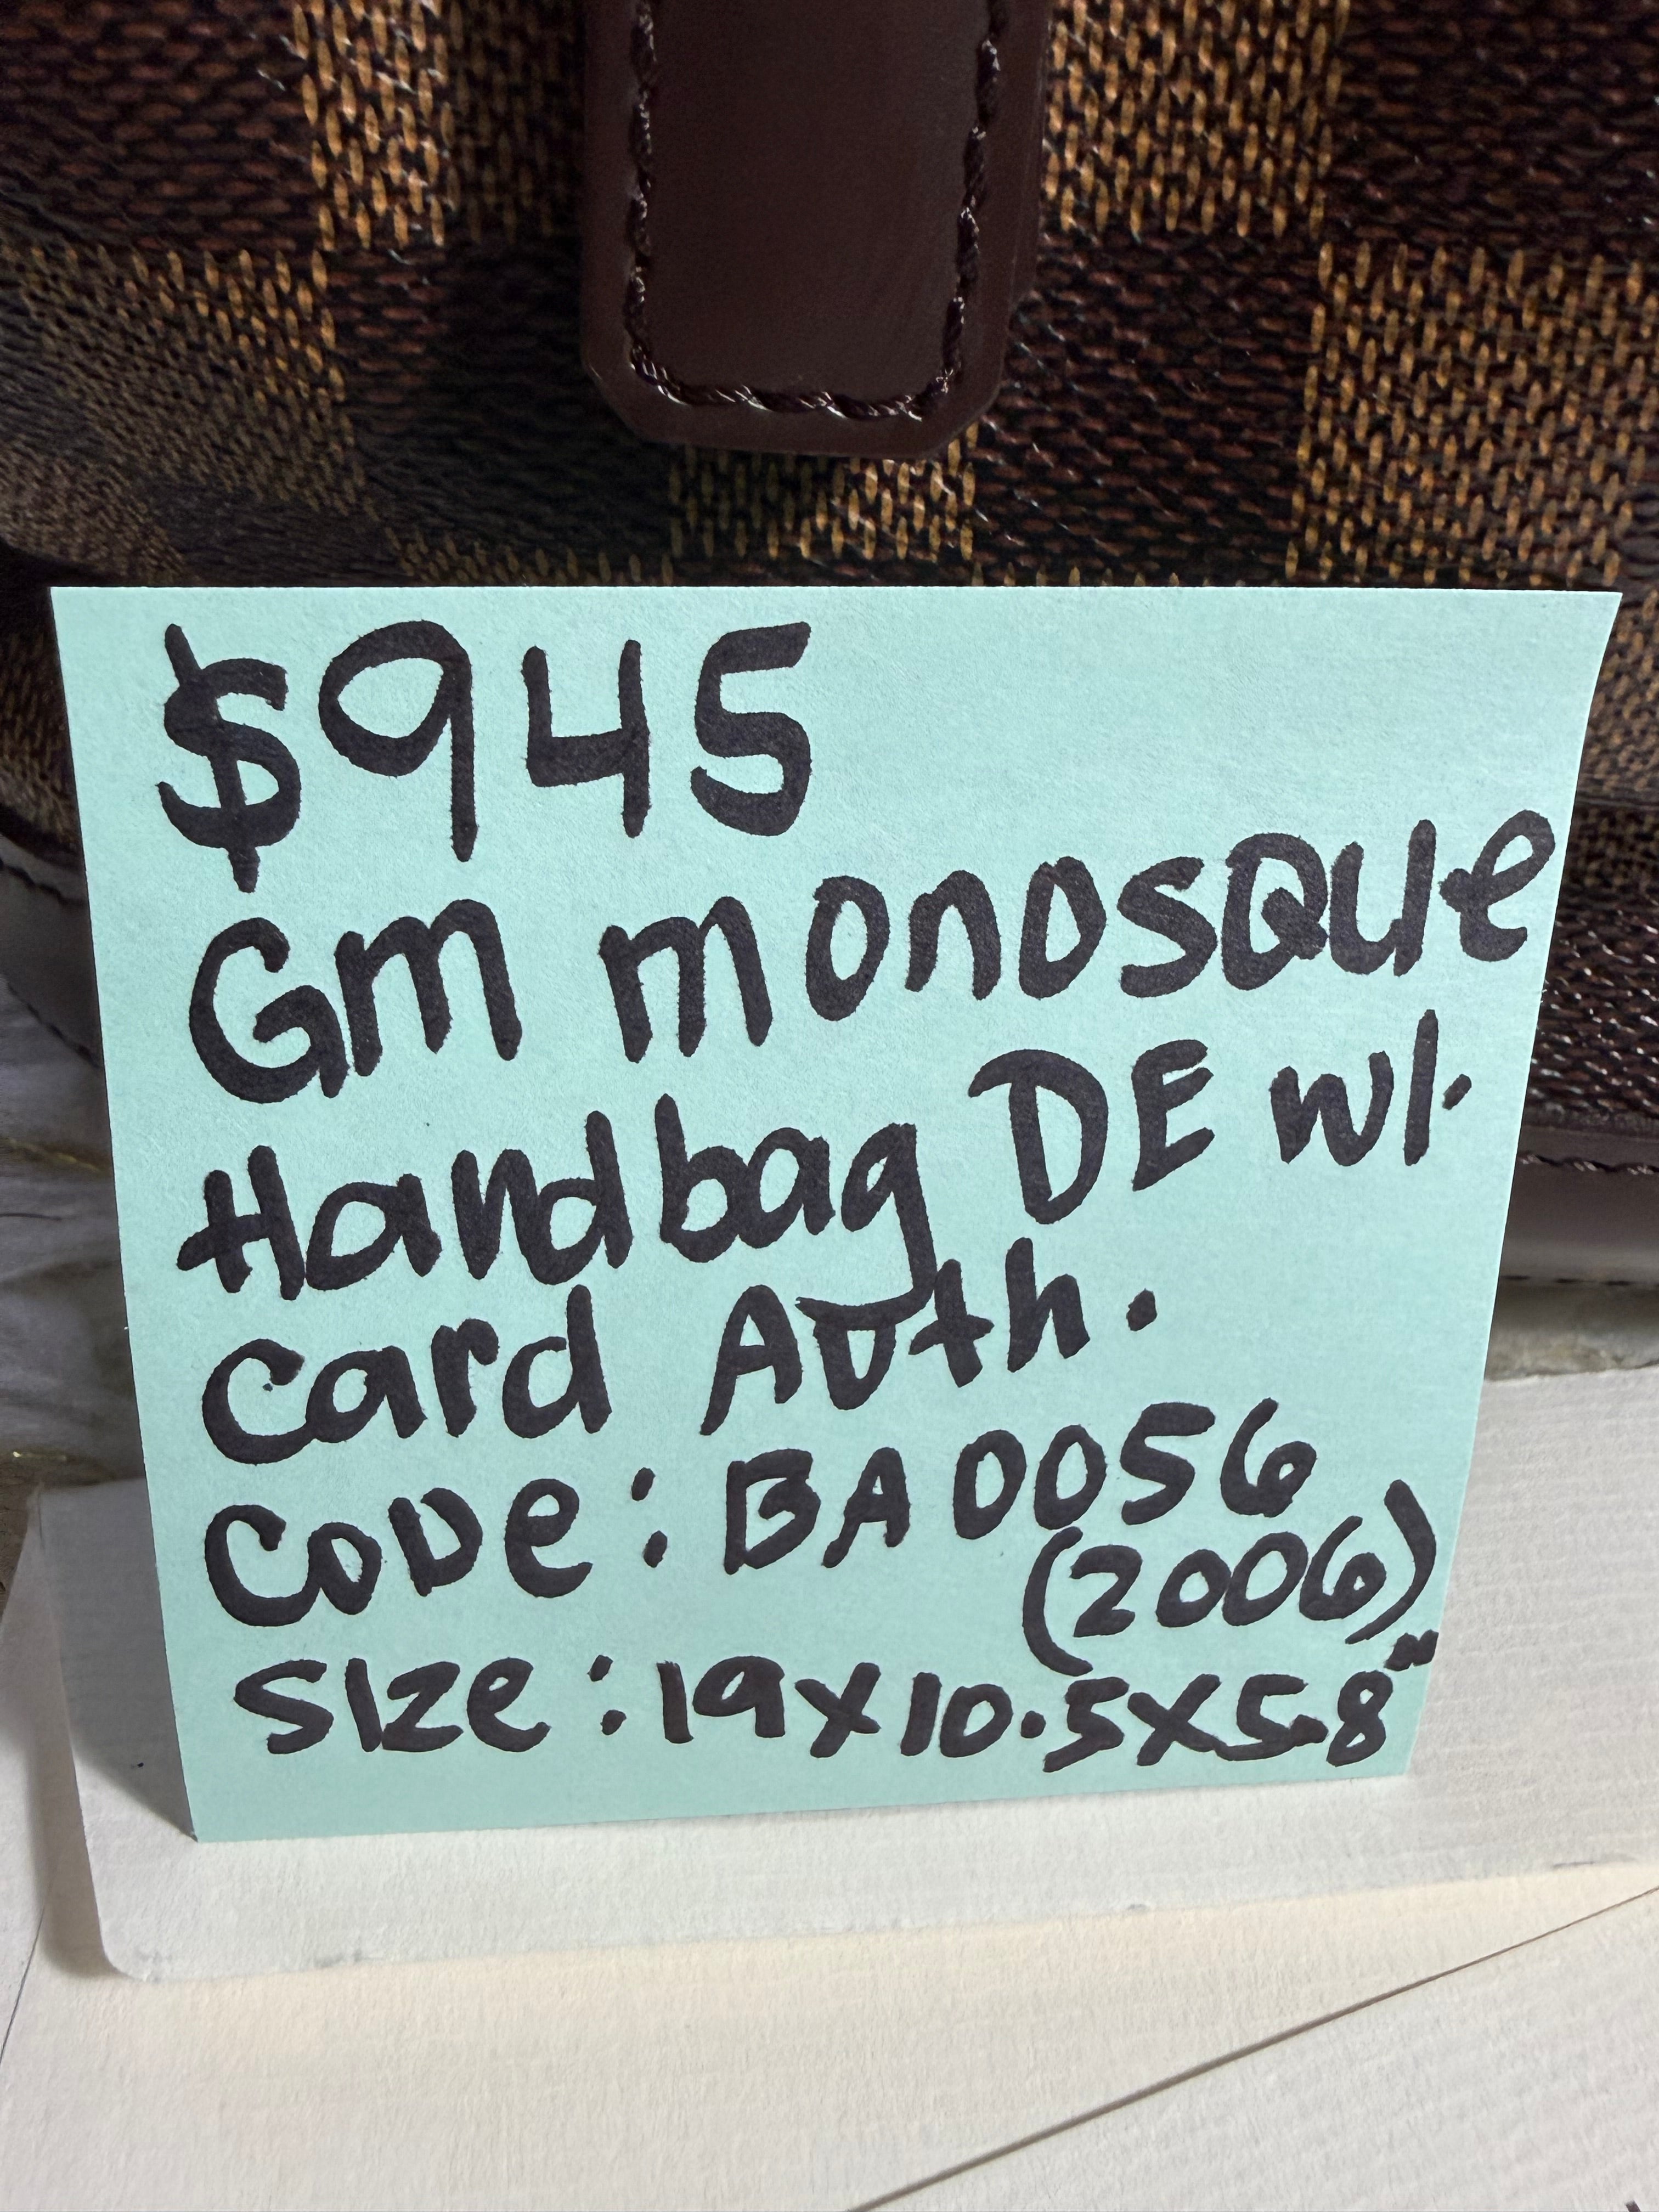 $945
Gm monosque
Handbag DE w/.
card Auth.
Code: BA0056
(2006)
Size: 19x10.5x5.8"